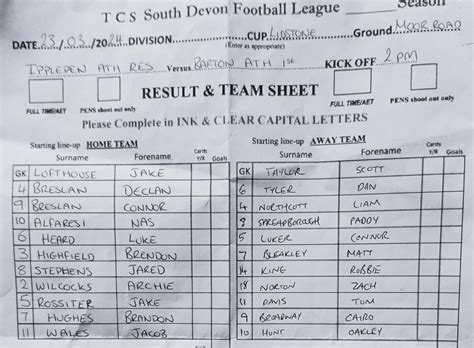 TCS South Devon Football League Season
DATE 23/03/2024 DIVISION CUP LIDSTONE Ground MOOR ROAD
(Enter as appropriate)
IPPLEPEN ATH RES Versus BARTON ATH 1st KICK OFF 2PM
RESULT & TEAM SHEET
FULL TIME/AET PENS shoot out only FULL TIME/AET PENS shoot out only
Please Complete in INK & CLEAR CAPITAL LETTERS
Starting line-up HOME TEAM Cards Starting line-up AWAY TEAM Cards
Surname Forename Y/R Goals Surname Forename Y/R Goals
GK LOFTHOUSE JAKE GK TAYLOR SCOTT
4 BRESLAN DECLAN 6 TYLER DAN
9 BRESLAN CONNOR 4 NORTHCOTT LIAM
10 ALFARESI NAS 8 SPREADBOROUGH PADDY
6 HEARD LUKE 5 LUKER CONNOR
3 HIGHFIELD BRENDON 7 BLEAKLEY MATT
8 STEPHENS JARED 14 KING ROBBIE
2 WILCOCKS ARCHIE 18 NORTON ZACH
5 ROSSITER JAKE 11 DAVIS TOM
7 HUGHES BRANDON 9 BROADWAY CAIRO
11 WALES JACOB 10 HUNT OAKLEY